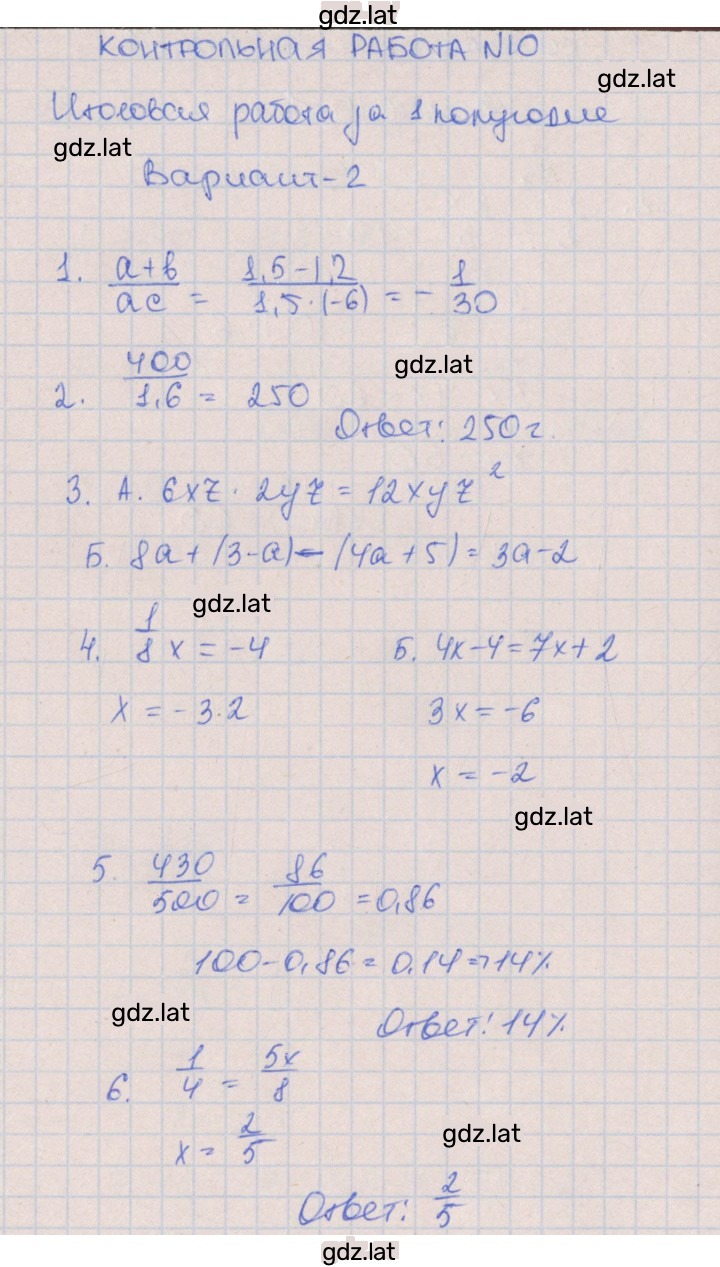 gdz.lat
КОНТРОЛЬНАЯ РАБОТА N10
gdz.lat
Итоговая работа за 1 полугодие
gdz.lat
Вариант-2
1. (a+b)/(ac) = (1,5-1,2)/(1,5·(-6)) = -1/30
gdz.lat
2. 400/1,6 = 250
Ответ: 250г.
3. А. 6xz · 2yz = 12xyz²
Б. 8a+(3-a)-(4a+5)=3a-2
gdz.lat
4. 1/8 x = -4 Б. 4x-4=7x+2
x = -3·2 3x = -6
x = -2
gdz.lat
5. 430/500 = 86/100 = 0,86
100-0,86 = 0,14 = 14%
gdz.lat
Ответ: 14%
6. 1/4 = 5x/8
gdz.lat
x = 2/5
Ответ: 2/5
gdz.lat